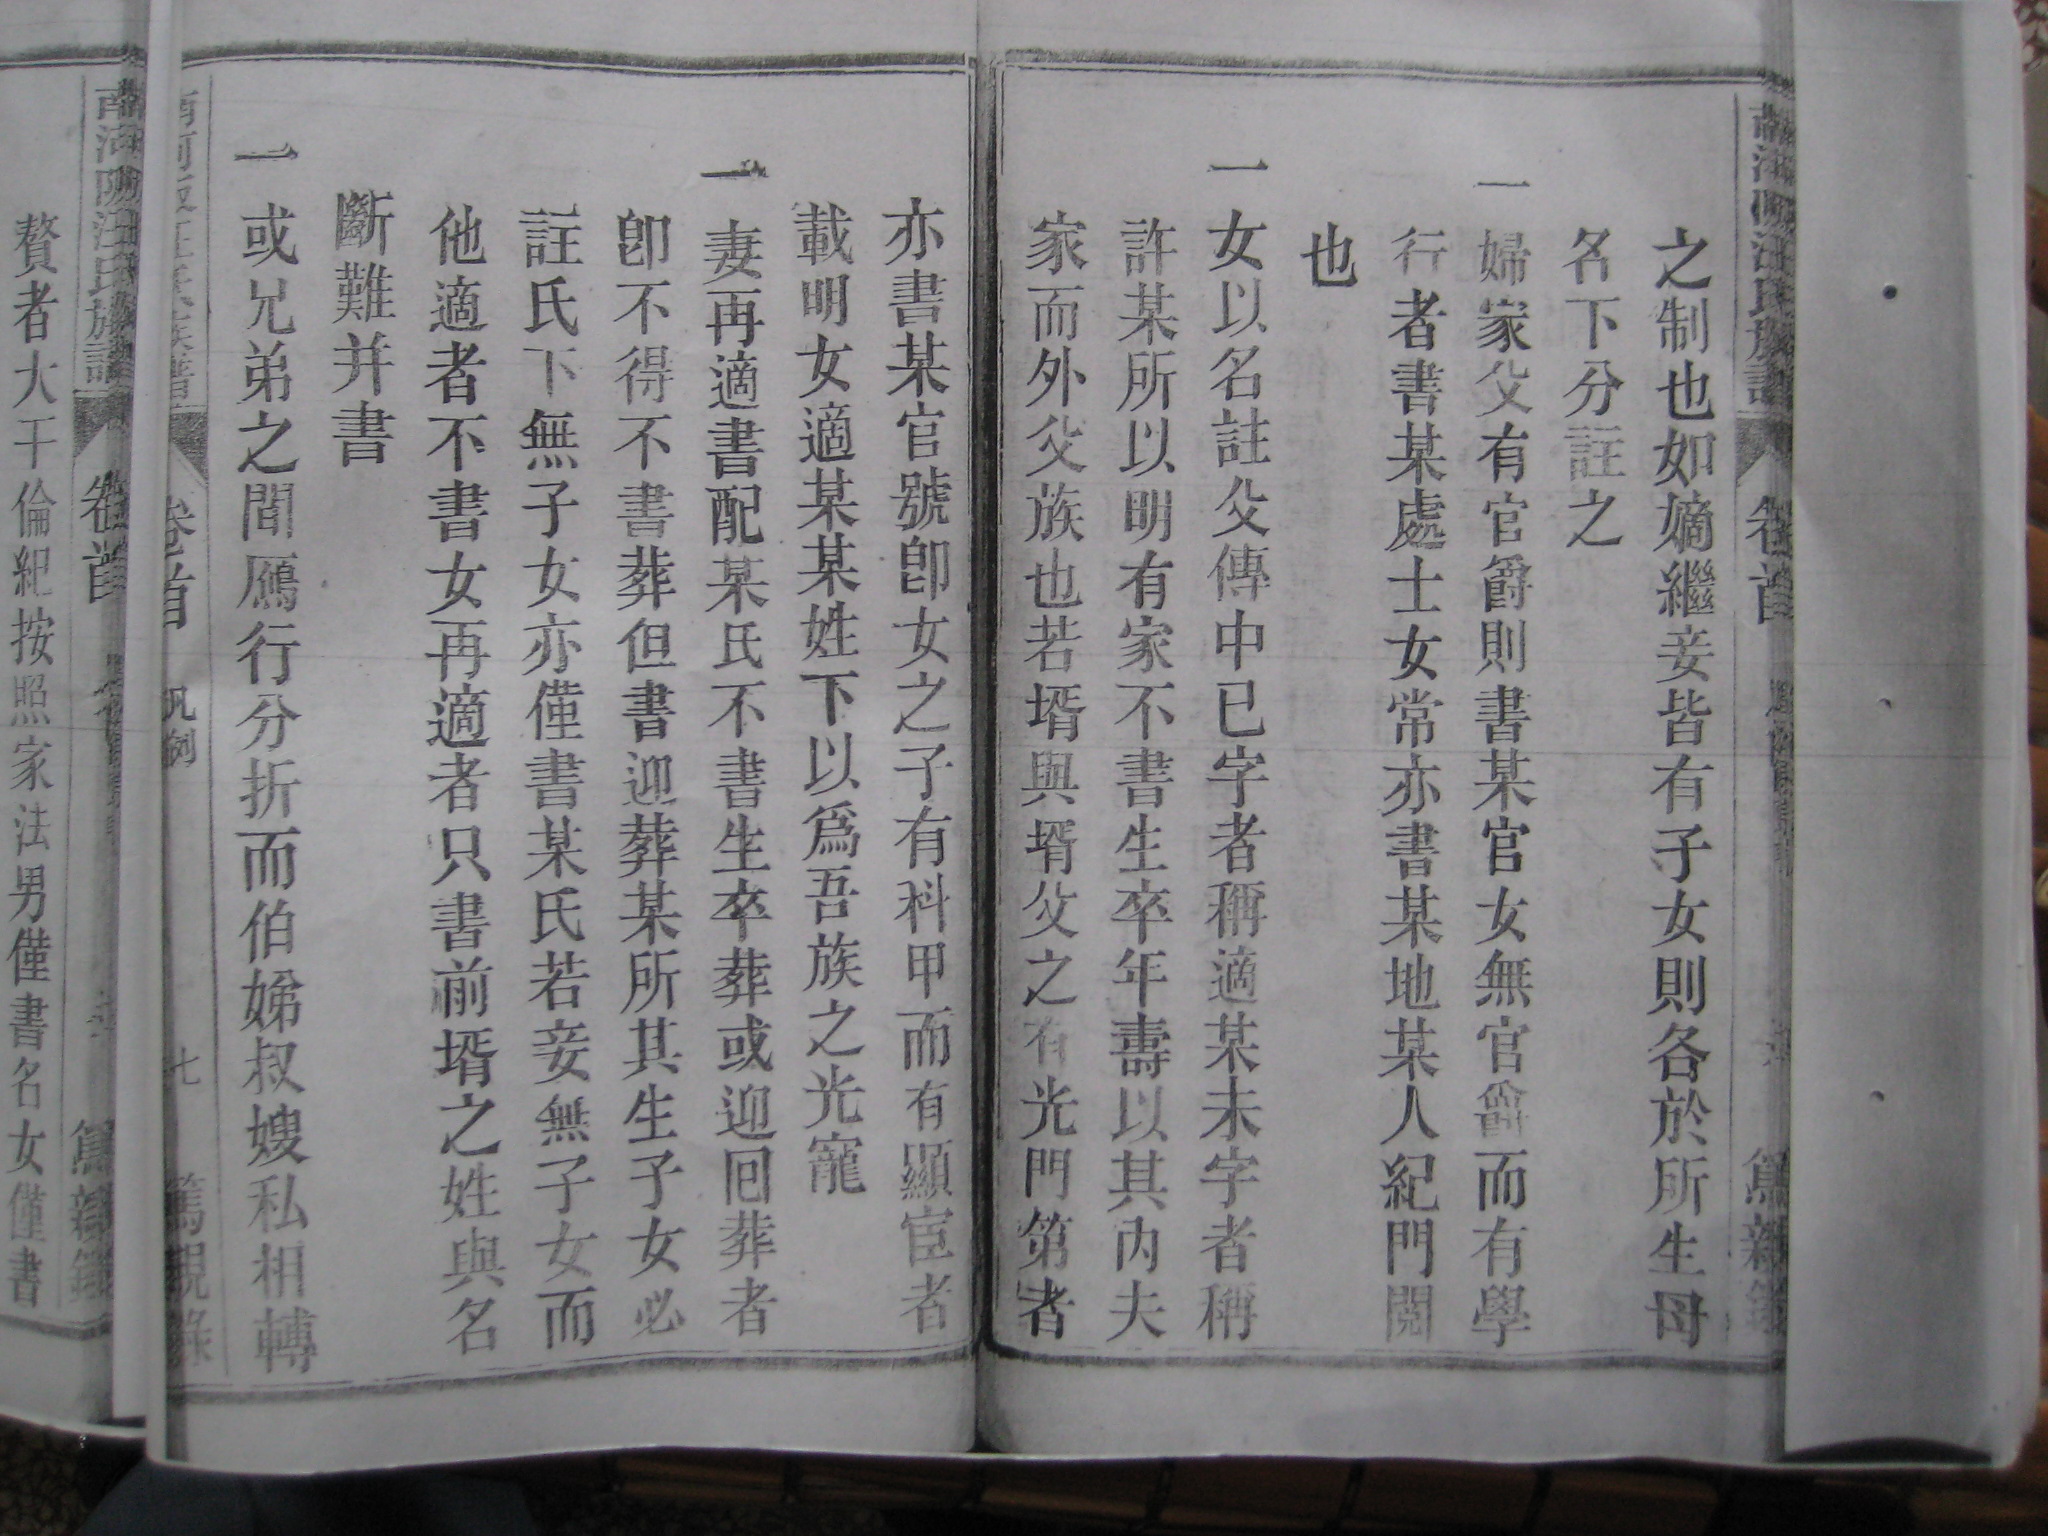 之制也如嫡繼妾皆有子女則各於所生母
名下分註之
一婦家父有官爵則書某官女無官爵而有學
行者書某處士女常亦書某地某人紀門閥
也
一女以名註父傳中已字者稱適某未字者稱
許某所以明有家不書生卒年壽以其內夫
家而外父族也若壻與壻父之有光門第者
亦書某官號卽女之子有科甲而有顯宦者
載明女適某某姓下以爲吾族之光寵
一妻再適書配某氏不書生卒葬或迎囘葬者
卽不得不書葬但書迎葬某所其生子女必
註氏下無子女亦僅書某氏若妾無子女而
他適者不書女再適者只書前壻之姓與名
斷難并書
一或兄弟之間鴈行分折而伯娣叔嫂私相轉
卷首 凡例 七 篤親錄
贅者大干倫紀按照家法男僅書名女僅書